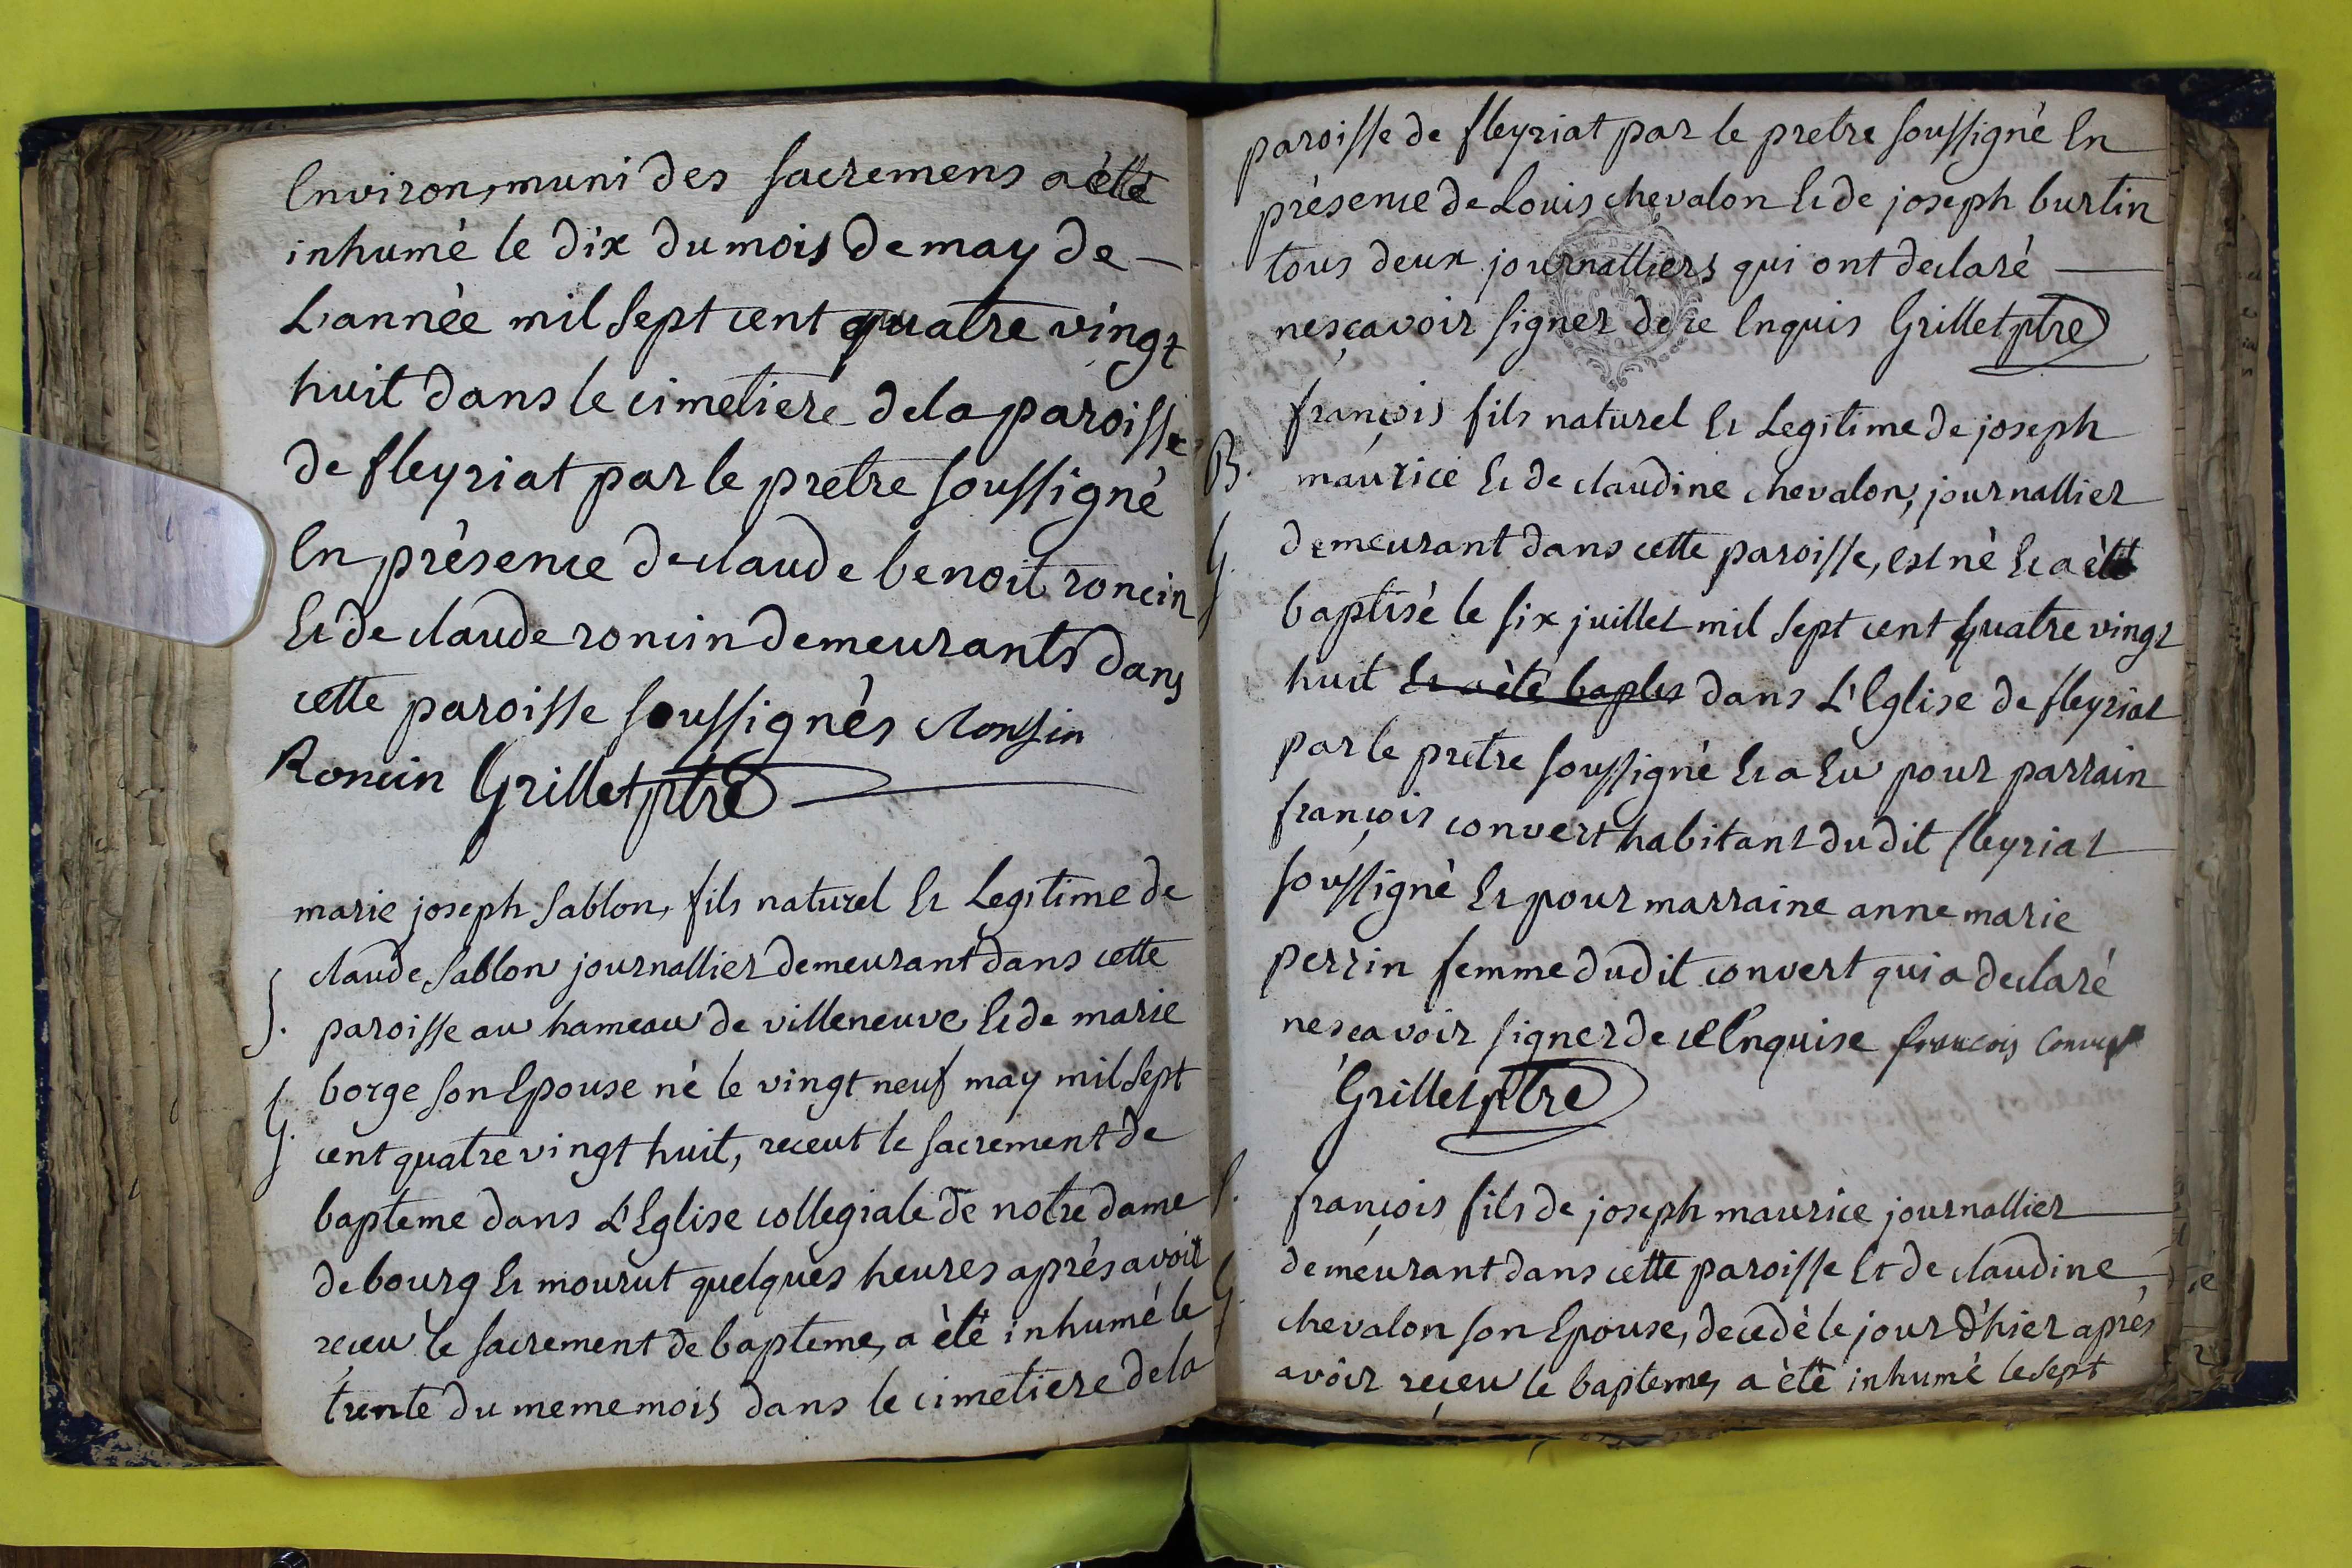 Environ, muni des sacremens a èté
inhumé le dix du mois de may de
L'année mil sept cent quatre vingt
huit dans le cimetiere dela paroisse
de fleyriat par le pretre soussigné
En présence de claude benoit roncin
Et de claude roncin demeurants dans
cette paroisse soussignés
Roncin Grillet ptre
marie joseph sablon, fils naturel Et Legitime de
claude sablon journallier demeurant dans cette
S. paroisse au hameau de villeneuve Et de marie
G. borge son Epouse né le vingt neuf may mil sept
cent quatre vingt huit, receut le sacrement de
bapteme dans L'Eglise collegiale de notre dame
de bourg Et mourut quelques heures aprés avoir
reçeu le sacrement de bapteme, a èté inhumé le
trente du meme mois dans le cimetiere dela
paroisse de fleyriat par le pretre soussigné En
présence de Louis chevalon Et de joseph burtin
tous deux journalliers qui ont declaré
ne sçavoir signer de ce Enquis Grillet ptre
françois fils naturel Et Legitime de joseph
B. maurice Et de claudine chevalon, journallier
G. demeurant dans cette paroisse, est né Et a èté
baptisé le six juillet mil sept cent quatre vingt
huit Et a èté baptis dans L'Eglise de fleyriat
par le pretre soussigné Et a Eu pour parrain
françois convert habitant du dit fleyriat
soussigné Et pour marraine anne marie
perrin femme dudit convert qui a declaré
ne sçavoir signer de ce Enquise francois Convert
Grillet ptre
S. françois fils de joseph maurice journallier
demeurant dans cette paroisse Et de claudine
G. chevalon son Epouse, decedé le jour d'hier aprés
avoir reçeu le bapteme, a èté inhumé le sept